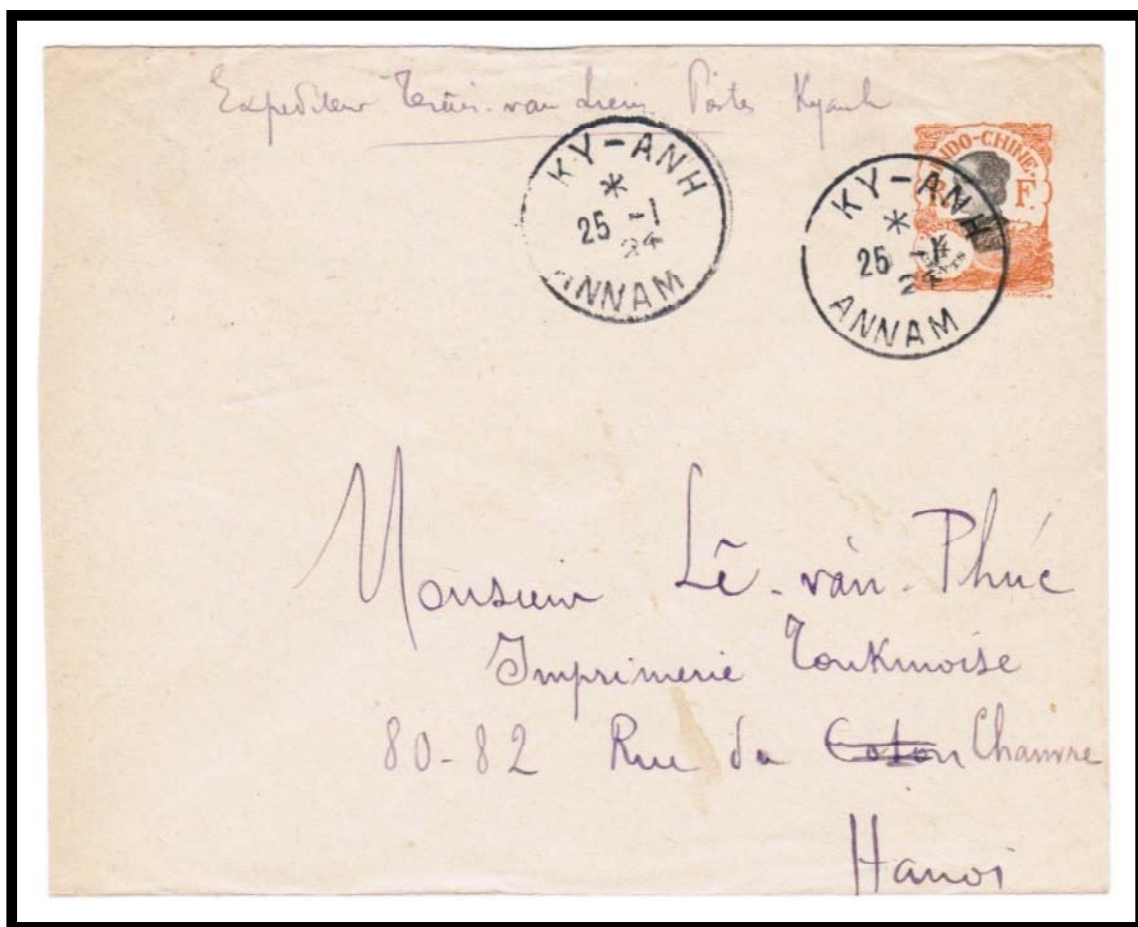 Expediteur van Postes Kyanh
KY-ANH
25 -1
24
ANNAM
INDO-CHINE
R. F.
KY-ANH
25 -1
24
ANNAM
Monsieur Lê-vàn-Phúc
Imprimerie Tonkinoise
80-82 Rue du Coton Chanvre
Hanoi